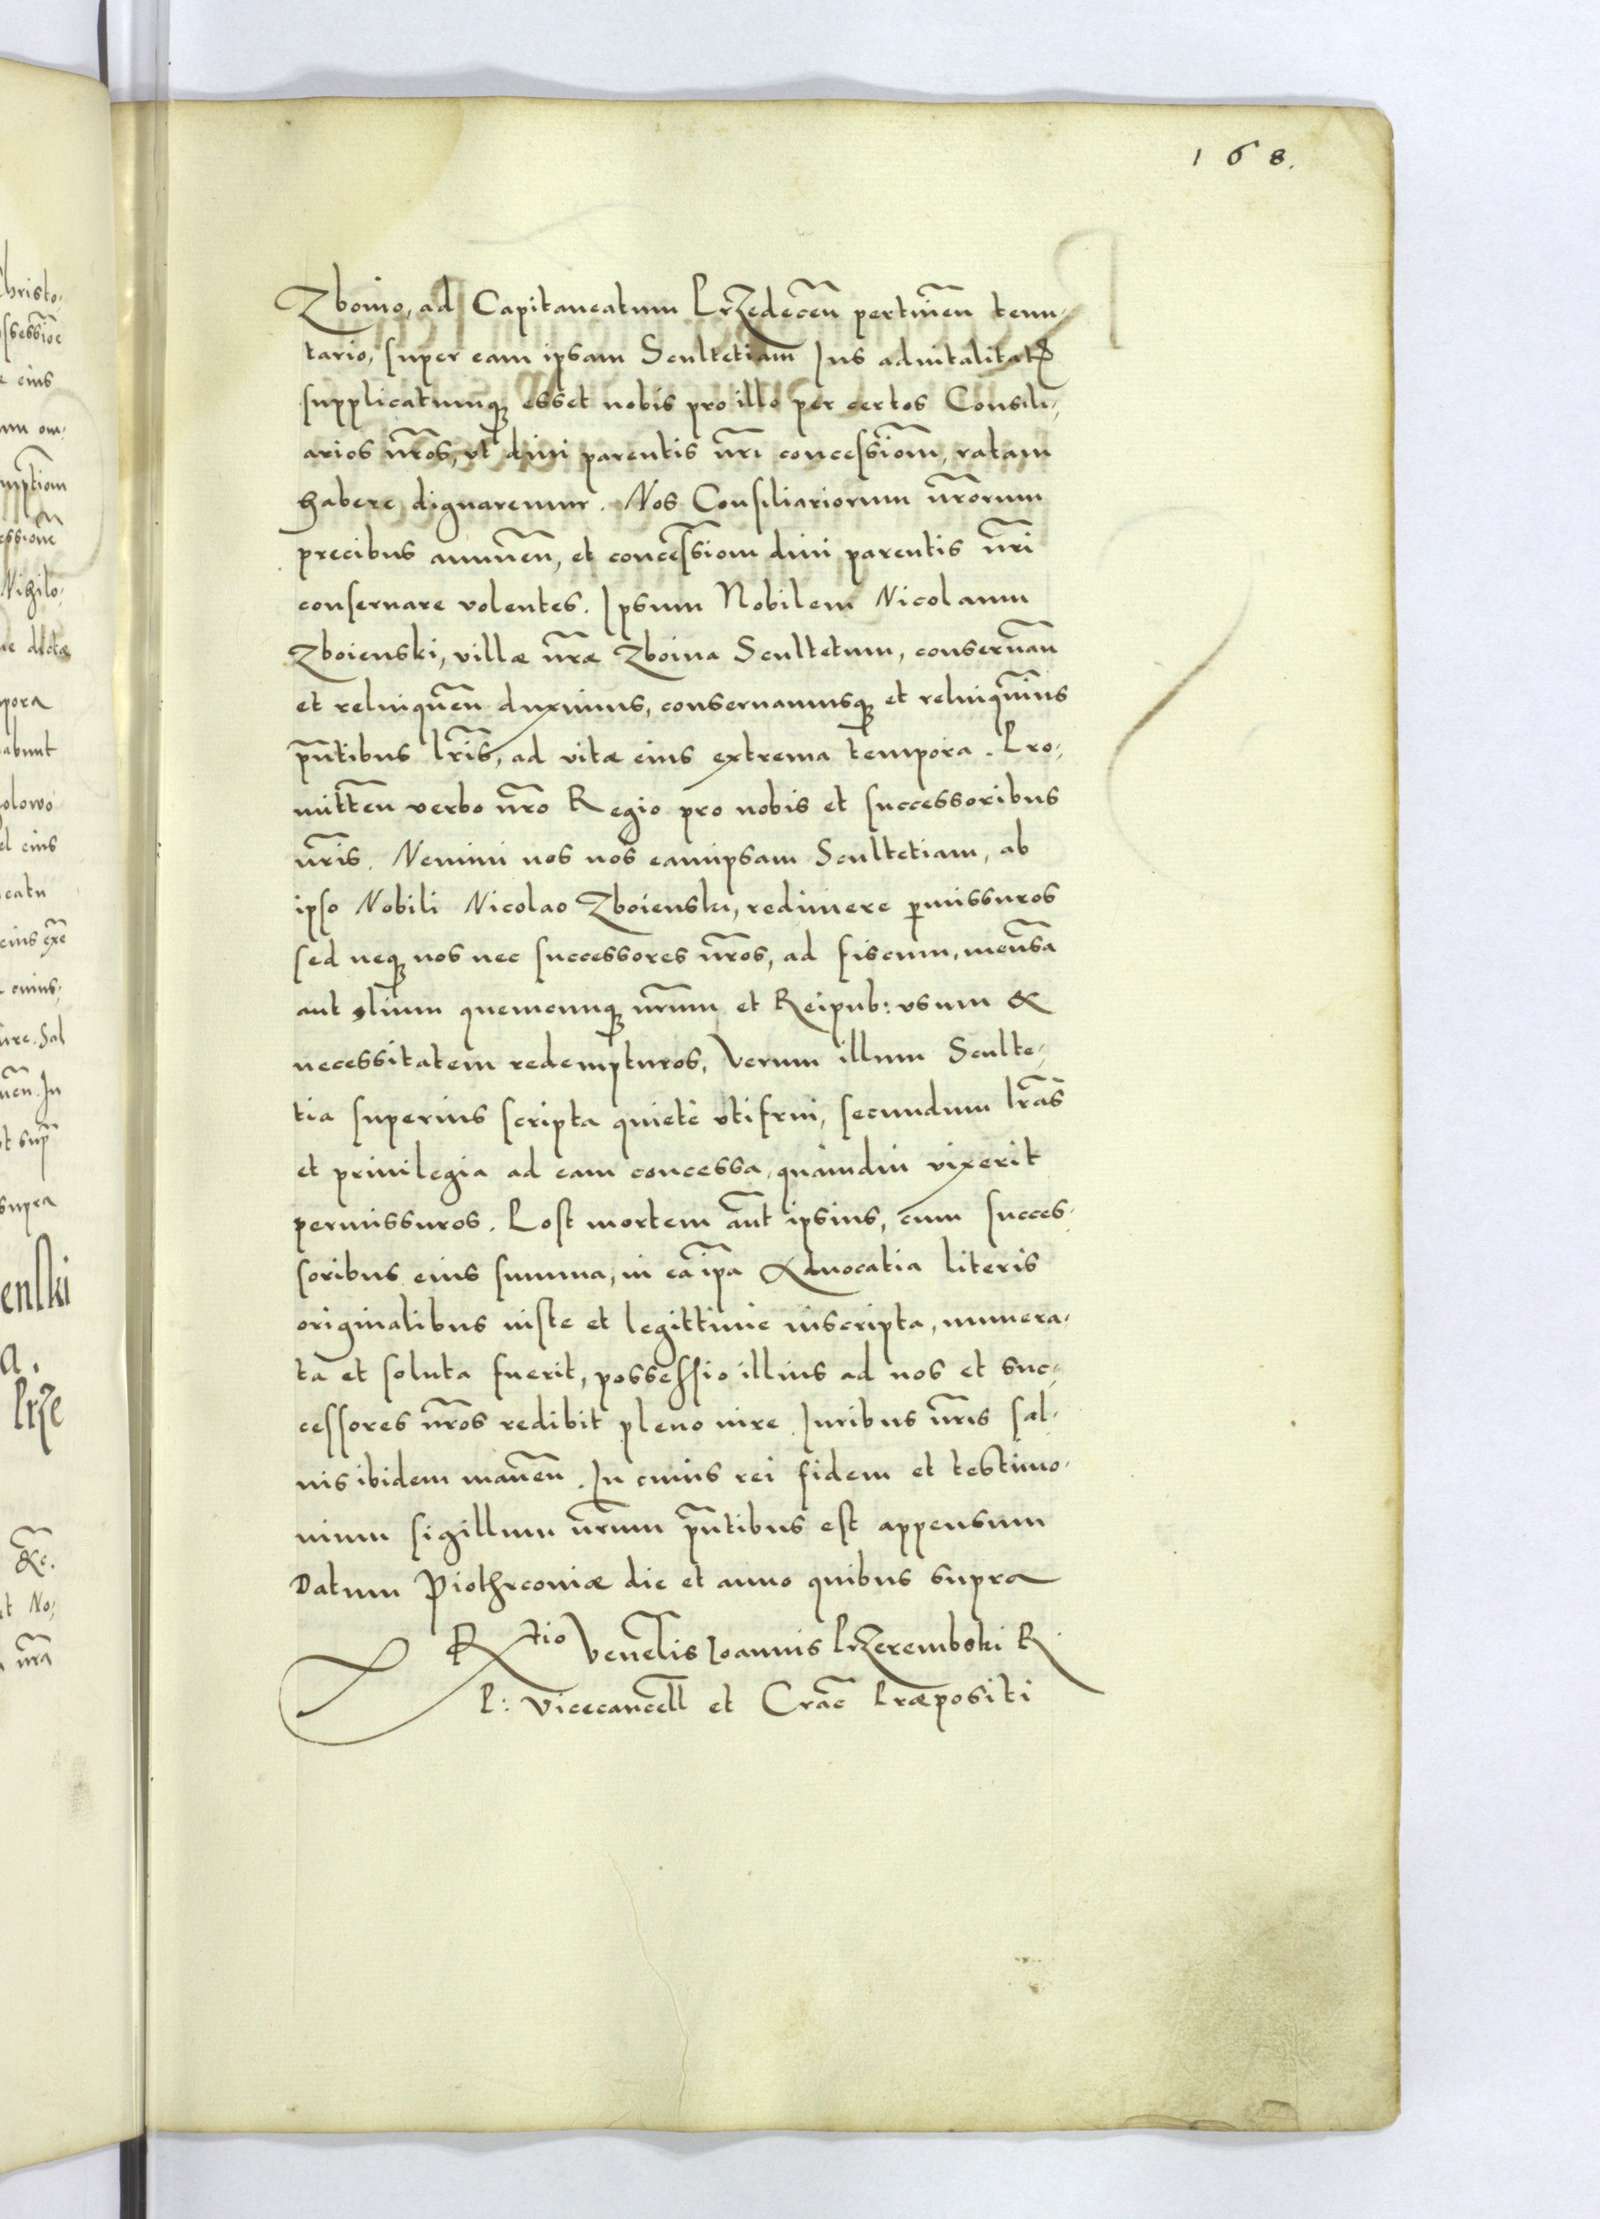 168.
Zboino, ad Capitaneatum Przedeceñ pertineñ tenu-
tario, super eam ipsam Scultetiam Ius aduitalitat
supplicatumq esset nobis pro illo per certos Consili-
arios nros, vt diui parentis nri concessiom, ratam
habere dignaremur. Nos Consiliariorum nrorum
precibus annueñ, et concessiom diui parentis nri
conseruare volentes. Ipsum Nobilem Nicolaum
Zboienski, villæ nræ Zboina Scultetum, conseruañ
et relinqueñ duximus, conseruamusq et relinquimus
pñtibus lris, ad vitæ eius extrema tempora. Pro-
mitteñ verbo nro Regio pro nobis et successoribus
nris. Nemini nos nos eamipsam Scultetiam, ab
ipso Nobili Nicolao Zboienski, redimere pmissuros
sed neq nos nec successores nros, ad fiscum, mensa
aut alium quemcunq nrum et Reipub: vsum &
necessitatem redempturos, Verum illum Sculte-
tia superius scripta quietè vtifrui, secundum lras
et priuilegia ad eam concessa, quàmdiu vixerit
permissuros. Post mortem aũt ipsius, cum succes-
soribus eius summa, in ea ipa Aduocatia literis
originalibus iuste et legittime inscripta, numera-
ta et soluta fuerit, possessio illius ad nos et suc-
cessores nros redibit pleno iure. Iuribus nris sal-
uis ibidem maneñ. In cuius rei fidem et testimo-
nium sigillum nrum pñtibus est appensum
Datum Piothrconiæ die et anno quibus supra
Rtio Venelis Ioannis Przerembski R
P: Vicecancell et Crac Præpositi